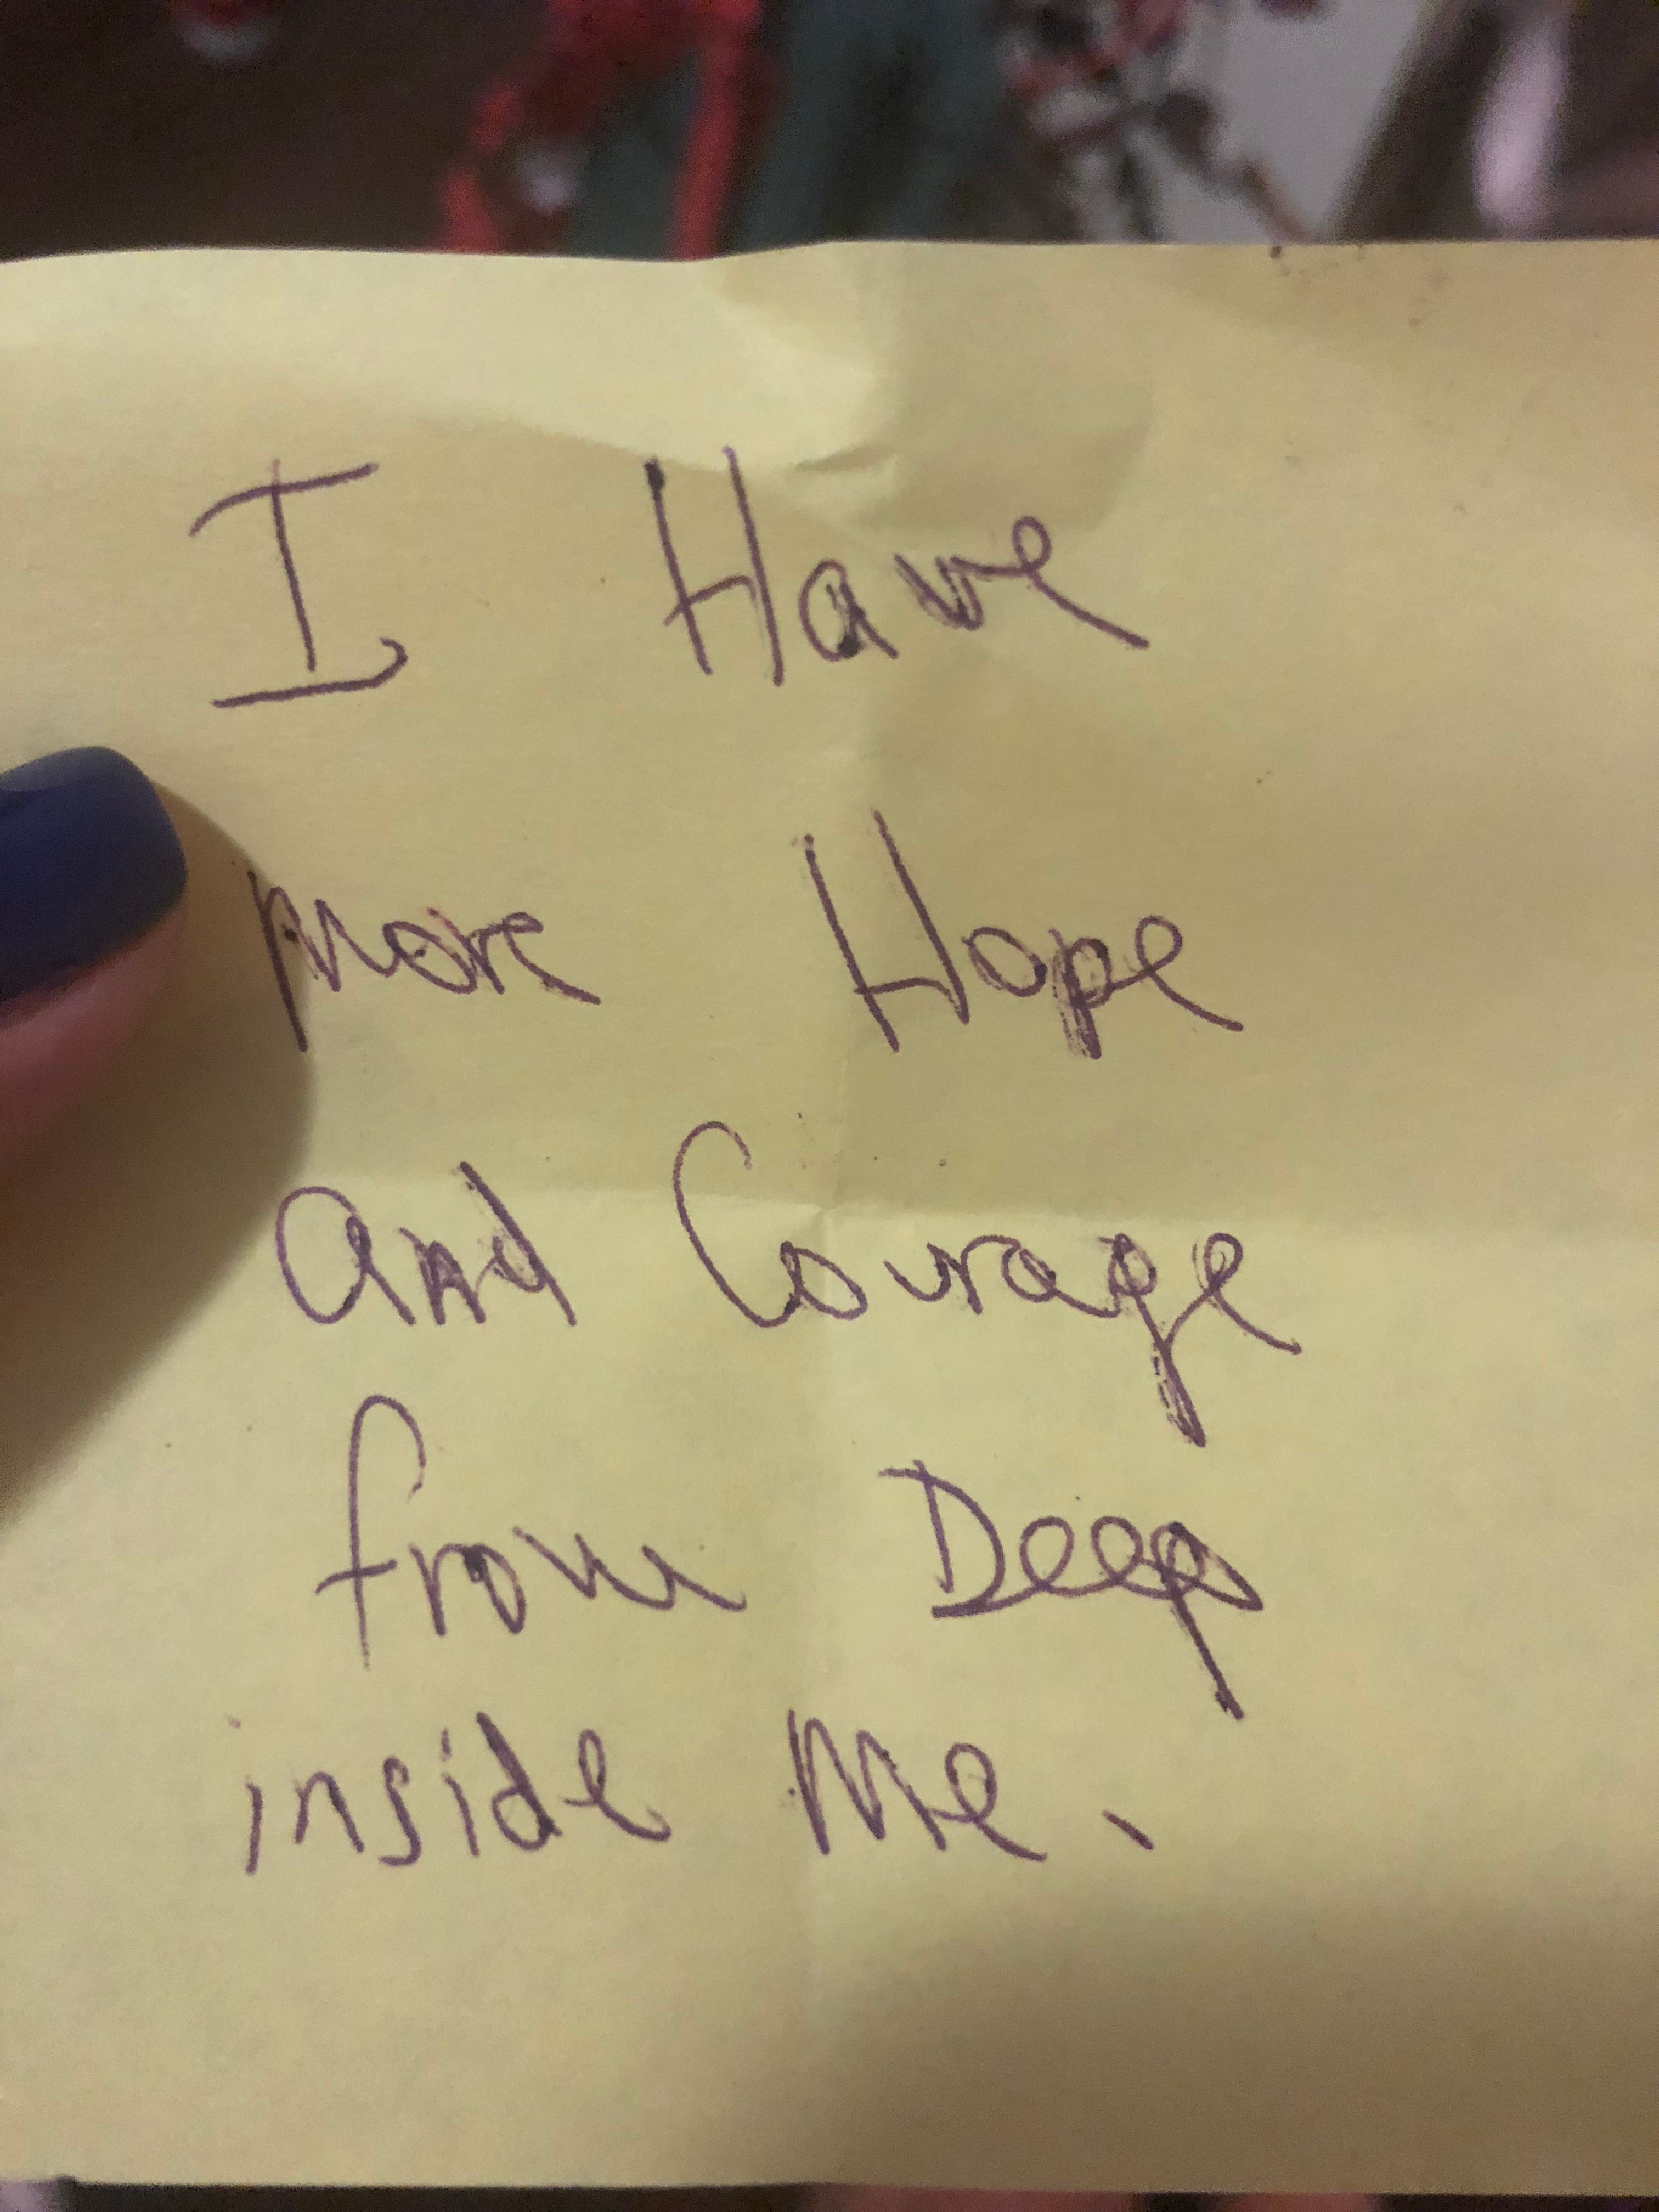 I Have
more Hope
and Courage
from Deep
inside Me.